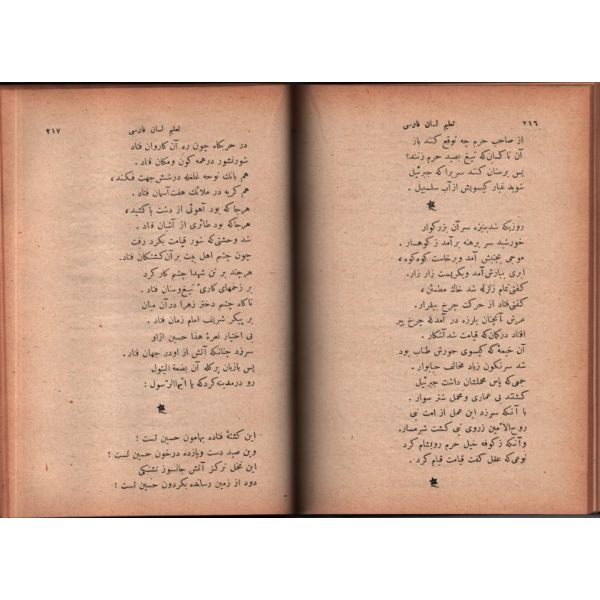 ٢١٦ تعليم لسان فارسى
از صاحب حرم چه توقع كنند باز
آن ناكسان كه تيغ بصيد حرم زنند؟
پس برسنان كنند سريرا كه جبرئيل
شويد غبار كيسويش از آب سلسبيل .
روزيكه شد بنيزه سر آن بزركوار
خورشيد سر برهنه بر آمد ز كوهسار .
موجى بجنبش آمد و برخاست كوه كوه،
ابرى ببارش آمد وبكريست زار زار .
كفتى تمام زلزله شد خاك مطمئن،
كفتى فتاد از حركت چرخ بيقرار .
عرش آنچنان بلرزه در آمد كه چرخ پير
افتاد دركمان كه قيامت شد آشكار .
آن خيمهٔ كه كيسوى حورش طناب بود
شد سرنكون زباد مخالف حبابوار .
جمى كه پاس محملشان داشت جبرئيل
كشتند بى عمارى ومحمل شتر سوار .
با آنكه سرزد اين عمل از امت نبى
روح الامين زروى نبى كشت شرمسار .
وآنكه زكوفه خيل حرم روبشام كرد
نوعى كه عقل كفت قيامت قيام كرد .
تعليم لسان فارسى ٢١٧
در حربكاه چون ره آن كاروان فتاد
شور نشور درهمه كون ومكان فتاد .
هم بانك نوحه غلغله درشش جهت فكند،
هم كريه بر ملائك هفت آسمان فتاد .
هرجا كه بود آهوئى از دشت پا كشيد،
هرجا كه بود طائرى از آشيان فتاد .
شد وحشتى كه شور قيامت بكرد رفت
چون چشم اهل بيت بر آن كشتكان فتاد .
هرچند بر تن شهدا چشم كار كرد
بر زخمهاى كارئ تيغ وسنان فتاد .
ناكاه چشم دختر زهرا در آن ميان
بر پيكر شريف امام زمان فتاد .
بى اختيار نعرهٔ هذا حسين ازاو
سرزد چنانكه آتش از اودر جهان فتاد .
پس بازبان پركله آن بضعة البتول
رو درمدينه كرد كه يا ايهاالرسول !
اين كشتهٔ فتاده بهامون حسين تست !
وين صيد دست وپازده درخون حسين تست !
اين نخل تر كز آتش جانسوز تشنكى
دود از زمين رسانده بكردون حسين تست !